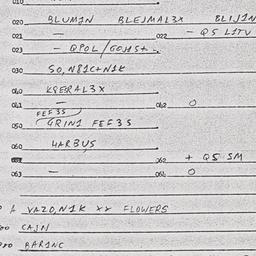 010
020 BLUMIN BLEJMAL3X BLIJIN
021 — 022 — QS LITV
023 — QPOL/
030 SO,N81C+N1K
040 KQERAL3X
041 — 042 O
FEF3S
050 GRIN1 FEF3S
060 HARBUS
062 + QS SM
063 — 064 O
A VAZO,N1K XX FLOWERS
CAJN
BARINC